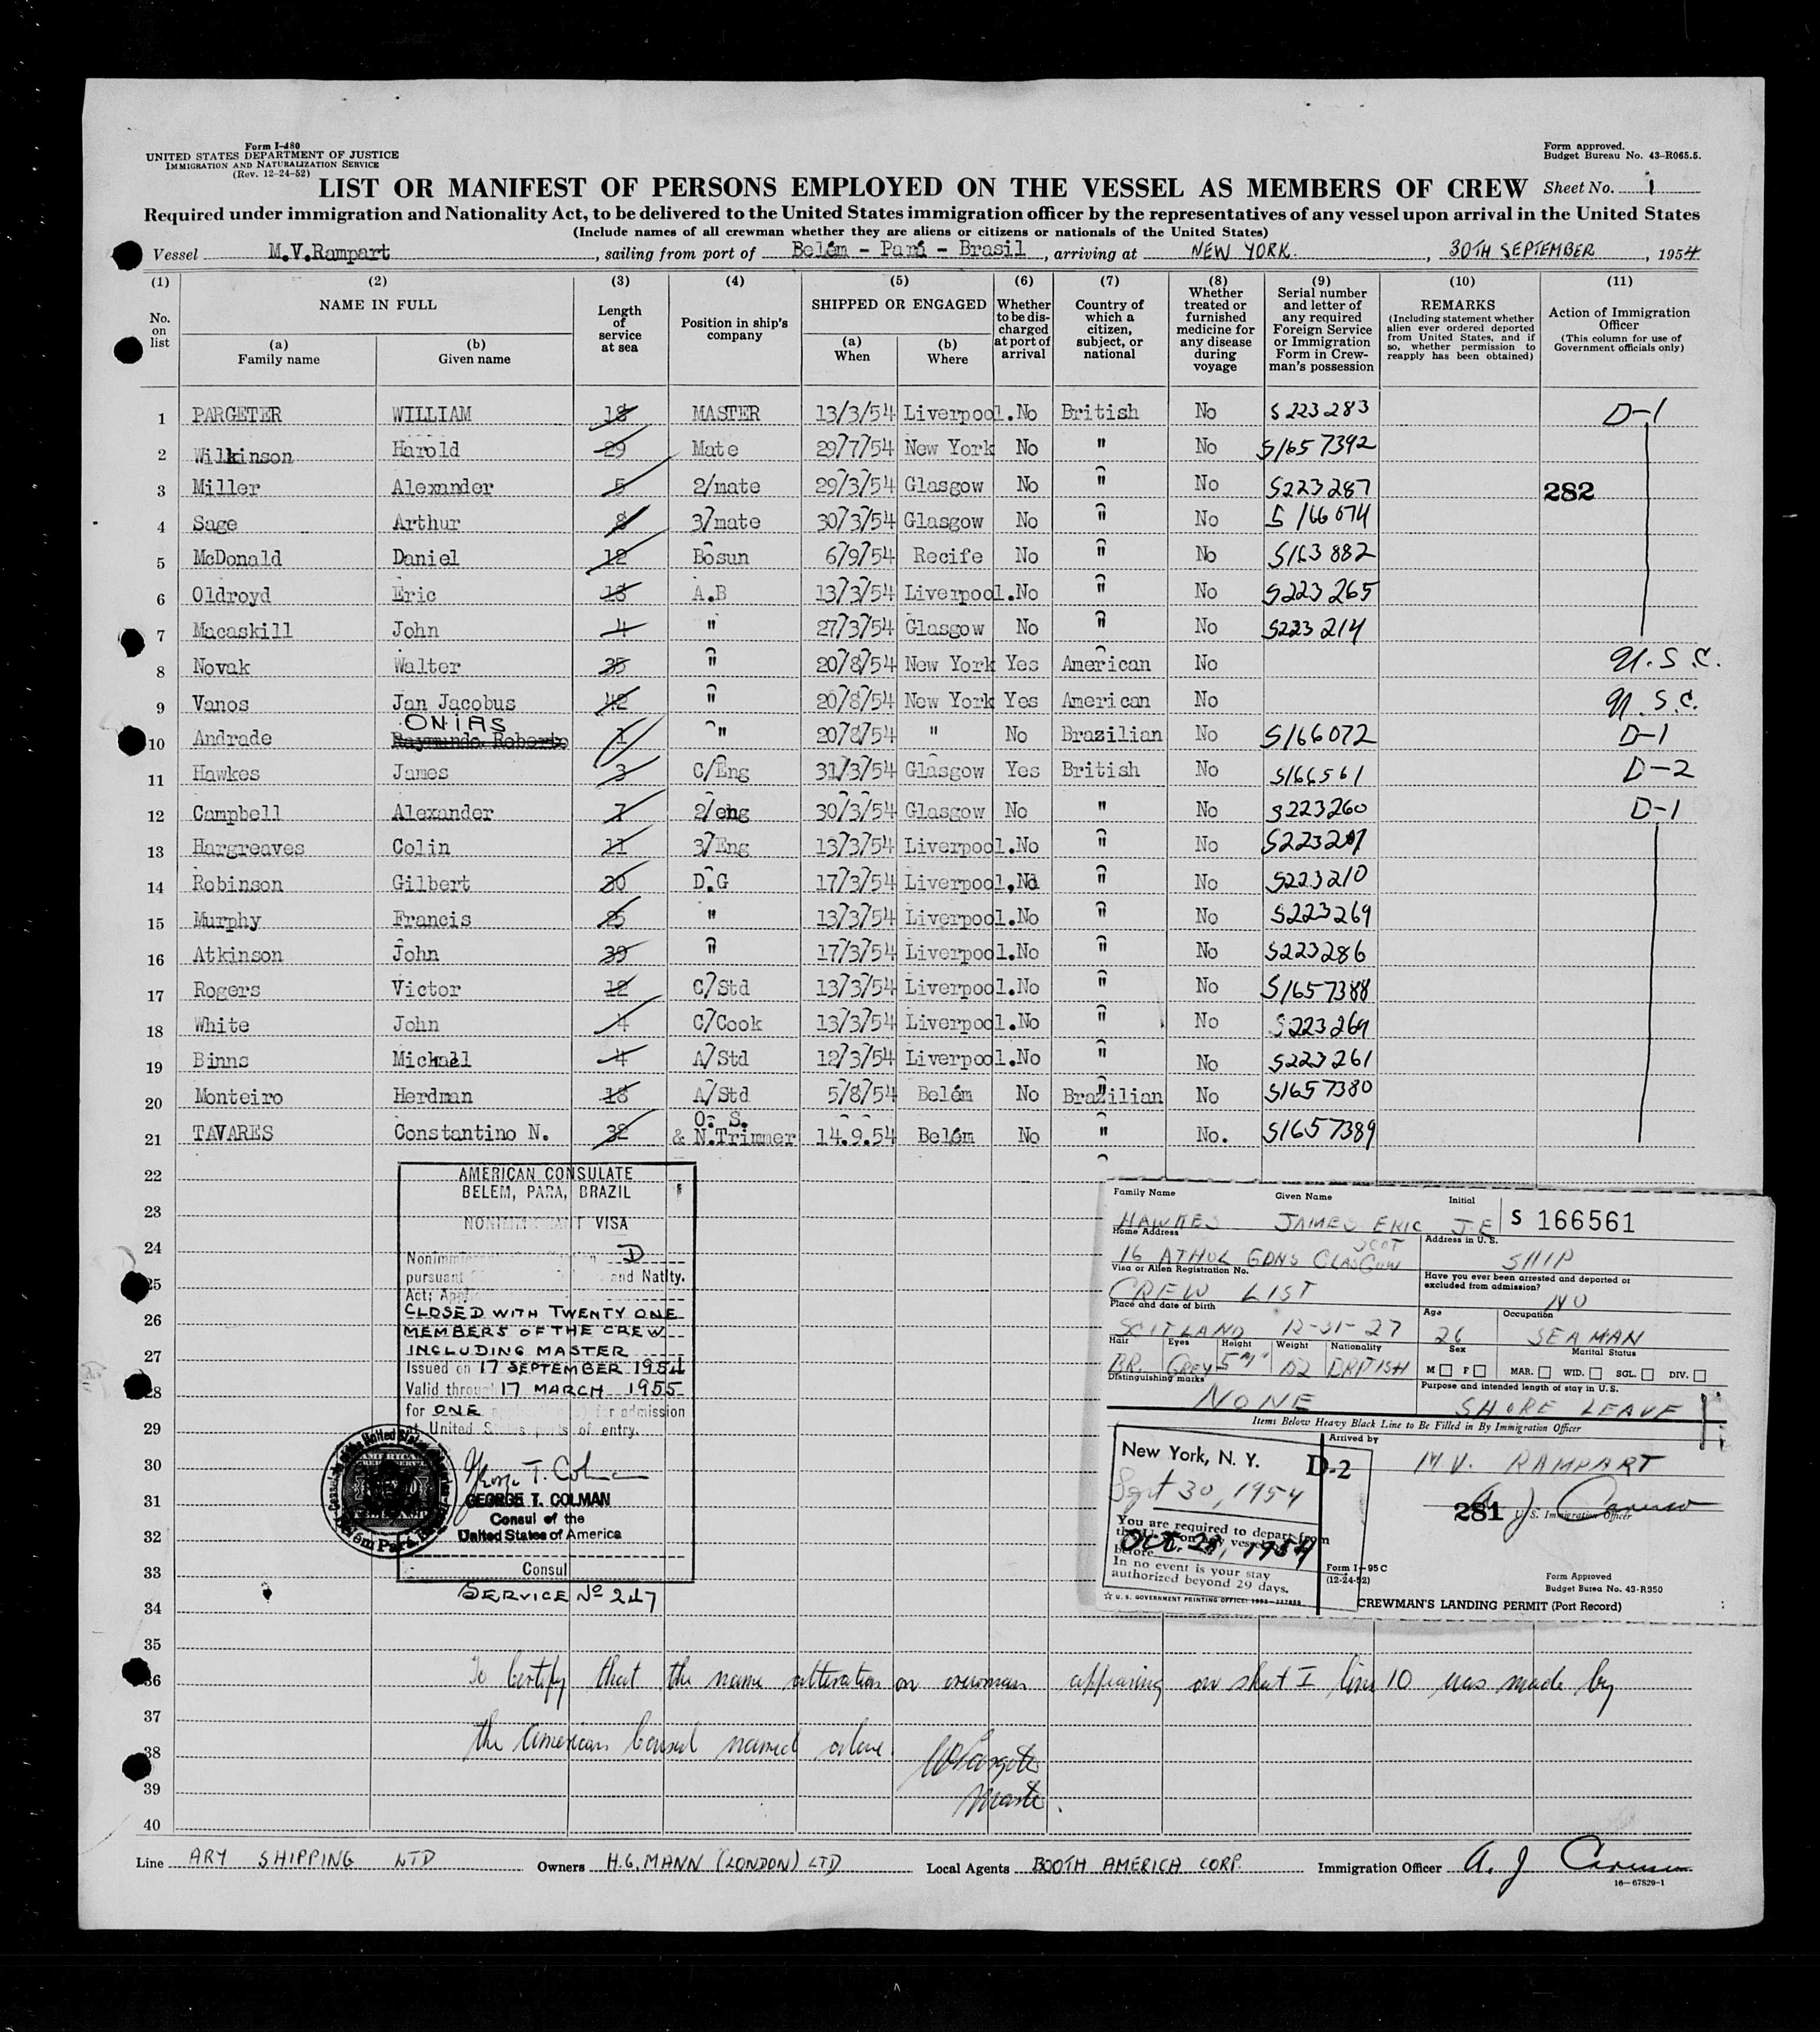 Form I-480
UNITED STATES DEPARTMENT OF JUSTICE
IMMIGRATION AND NATURALIZATION SERVICE
(Rev. 12-24-52)
Form approved.
Budget Bureau No. 43-R065.5.
LIST OR MANIFEST OF PERSONS EMPLOYED ON THE VESSEL AS MEMBERS OF CREW Sheet No. 1
Required under immigration and Nationality Act, to be delivered to the United States immigration officer by the representatives of any vessel upon arrival in the United States
(Include names of all crewman whether they are aliens or citizens or nationals of the United States)
Vessel M.V.Rampart, sailing from port of Belém - Pará - Brasil, arriving at NEW YORK., 30TH SEPTEMBER, 1954
(1) No. on list
(2) NAME IN FULL
(a) Family name
(b) Given name
(3) Length of service at sea
(4) Position in ship's company
(5) SHIPPED OR ENGAGED
(a) When
(b) Where
(6) Whether to be discharged at port of arrival
(7) Country of which a citizen, subject, or national
(8) Whether treated or furnished medicine for any disease during voyage
(9) Serial number and letter of any required Foreign Service or Immigration Form in Crewman's possession
(10) REMARKS (Including statement whether alien ever ordered deported from United States, and if so, whether permission to reapply has been obtained)
(11) Action of Immigration Officer (This column for use of Government officials only)
1 PARGETER WILLIAM 18 MASTER 13/3/54 Liverpool. No British No S223283 D-1
2 Wilkinson Harold 29 Mate 29/7/54 New York No " No S1657392
3 Miller Alexander 5 2/mate 29/3/54 Glasgow No " No S223287 282
4 Sage Arthur 8 3/mate 30/3/54 Glasgow No " No S166074
5 McDonald Daniel 12 Bosun 6/9/54 Recife No " No S163882
6 Oldroyd Eric 13 A.B 13/3/54 Liverpool. No " No S223265
7 Macaskill John 4 " 27/3/54 Glasgow No " No S223214
8 Novak Walter 35 " 20/8/54 New York Yes American No U.S.C.
9 Vanos Jan Jacobus 42 " 20/8/54 New York Yes American No U.S.C.
ONIAS
10 Andrade Raymundo Roberto 1 " 20/8/54 " No Brazilian No S166072 D-1
11 Hawkes James 3 C/Eng 31/3/54 Glasgow Yes British No S166561 D-2
12 Campbell Alexander 7 2/eng 30/3/54 Glasgow No " No S223260 D-1
13 Hargreaves Colin 11 3/Eng 13/3/54 Liverpool. No " No
14 Robinson Gilbert 30 D.G 17/3/54 Liverpool. No " No S223210
15 Murphy Francis 25 " 13/3/54 Liverpool. No " No S223269
16 Atkinson John 39 " 17/3/54 Liverpool. No " No S223286
17 Rogers Victor 12 C/Std 13/3/54 Liverpool. No " No S1657388
18 White John 4 C/Cook 13/3/54 Liverpool. No " No S223269
19 Binns Michael 4 A/Std 12/3/54 Liverpool. No " No S223261
20 Monteiro Herdman 18 A/Std 5/8/54 Belém No Brazilian No S1657380
O. S.
21 TAVARES Constantino N. 32 & N.Trimmer 14.9.54 Belém No " No. S1657389
22
23
24
25
26
27
28
29
30
31
32
33
34
35
36
37
38
39
40
AMERICAN CONSULATE
BELEM, PARA, BRAZIL
NONIMMIGRANT VISA
D
pursuant and Natlty.
Act;
CLOSED WITH TWENTY ONE
MEMBERS OF THE CREW
INCLUDING MASTER
Issued on 17 SEPTEMBER 1954
Valid through 17 MARCH 1955
for ONE for admission
at United States ports of entry.
GEORGE T. COLMAN
Consul of the
United States of America
Consul
SERVICE No 247
Family Name Given Name Initial
HAWKES JAMES ERIC J.E S 166561
Home Address Address in U.S.
16 ATHOL GDNS GLASGOW SCOT SHIP
Visa or Alien Registration No.
CREW LIST
Have you ever been arrested and deported or excluded from admission?
NO
Place and date of birth Age Occupation
SCOTLAND 12-31-27 26 SEAMAN
Hair Eyes Height Weight Nationality Sex Marital Status
BR. GREY BRITISH M F MAR. WID. SGL. DIV.
Distinguishing marks
NONE
Purpose and intended length of stay in U.S.
SHORE LEAVE
Items Below Heavy Black Line to Be Filled in By Immigration Officer
New York, N. Y. D-2
Sept 30, 1954
You are required to depart from
before OCT. 28, 1954
In no event is your stay
authorized beyond 29 days.
Arrived by
M.V. RAMPART
281 A J Caruso
U. S. Immigration Officer
Form I-95C
(12-24-52)
Form Approved
Budget Burea No. 43-R350
☆ U. S. GOVERNMENT PRINTING OFFICE:
CREWMAN'S LANDING PERMIT (Port Record)
To Certify that the name alteration on crewman appearing on sheet I line 10 was made by
the American Consul named above
W Pargeter
Master.
Line ARY SHIPPING LTD Owners H.G. MANN (LONDON) LTD Local Agents BOOTH AMERICA CORP. Immigration Officer A. J Caruso
16-67829-1